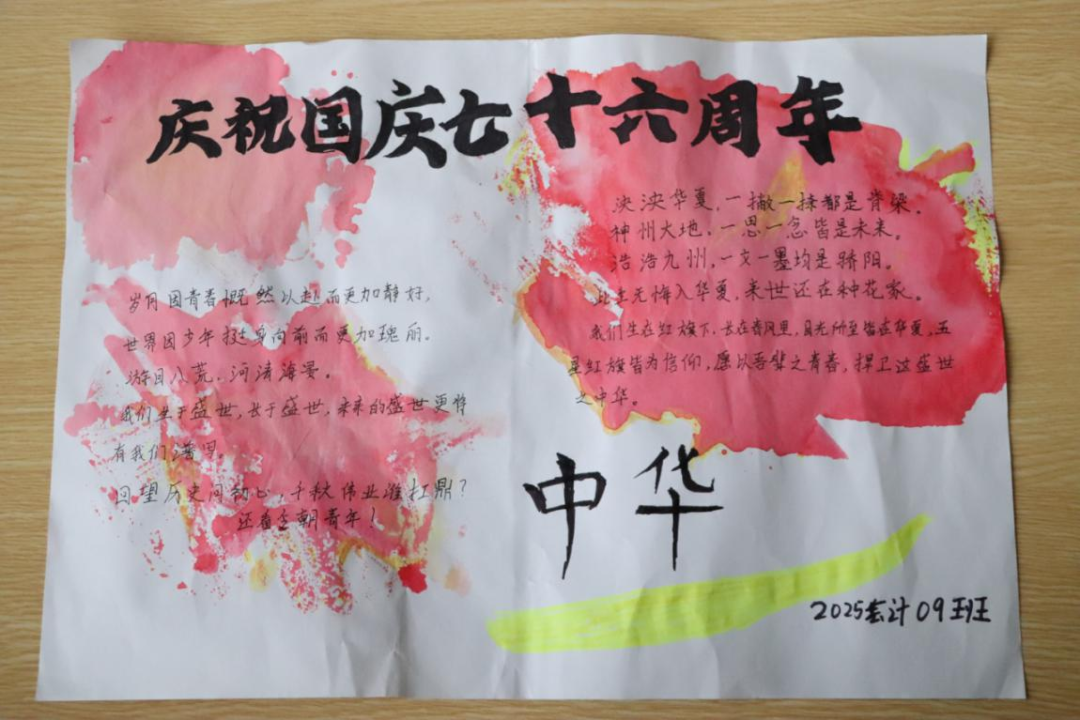 庆祝国庆七十六周年
岁月因青春慨然以赴而更加静好，
世界因少年挺身向前而更加瑰丽。
游目八荒，河清海晏。
我们生于盛世，长于盛世，未来的盛世更将
有我们
回望历史问初心，千秋伟业谁扛鼎？
还看今朝青年！
泱泱华夏，一撇一捺都是脊梁。
神州大地，一思一念皆是未来。
浩浩九州，一文一墨均是骄阳。
此生无悔入华夏，来世还在种花家。
我们生在红旗下，长在春风里，目光所至皆在华夏，五
星红旗皆为信仰，愿以吾辈之青春，捍卫这盛世
之中华。
中华
2025会计09班